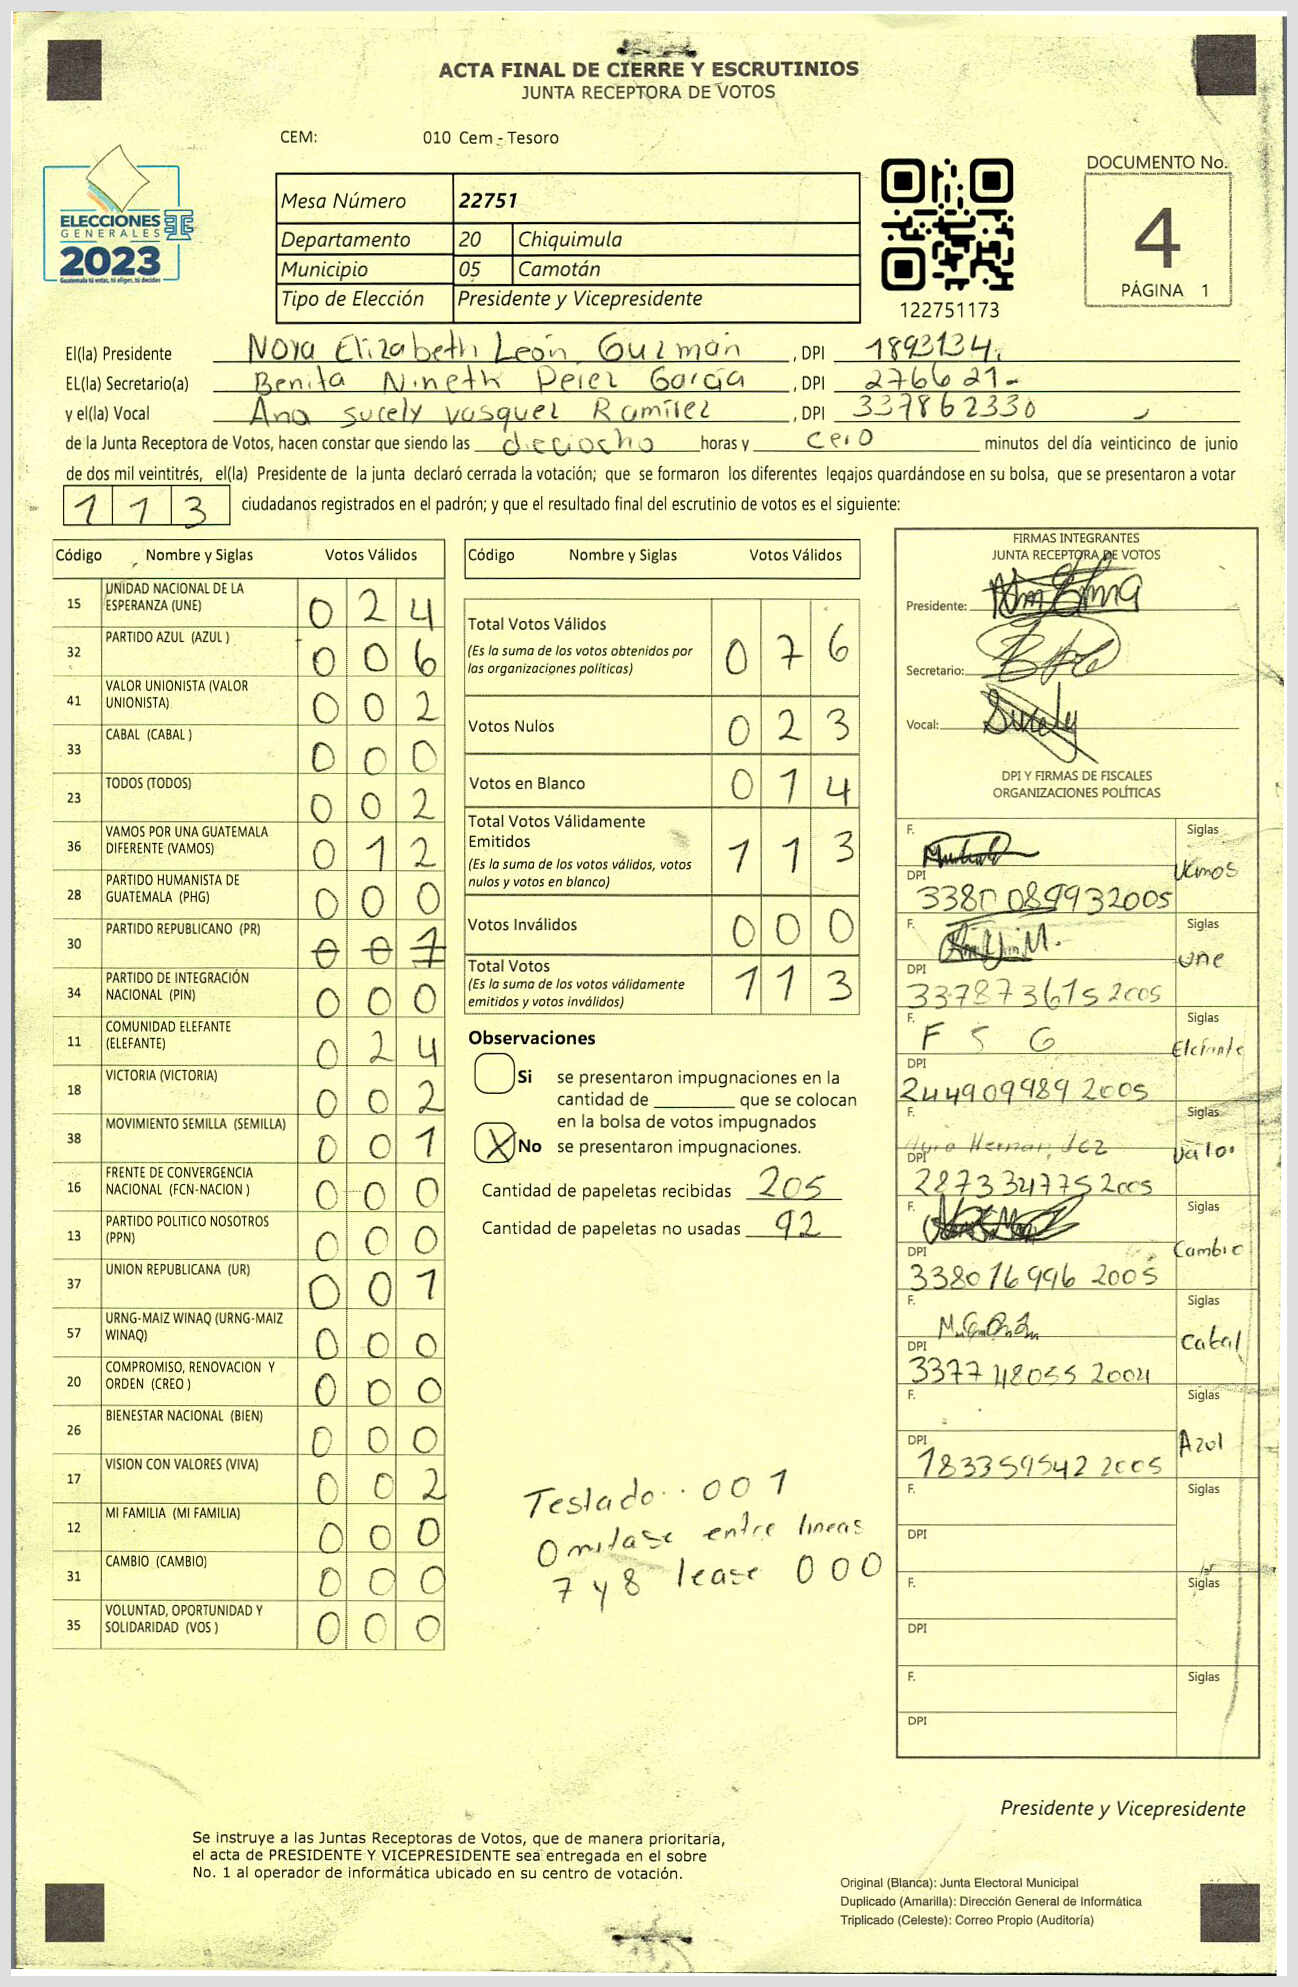 ACTA FINAL DE CIERRE Y ESCRUTINIOS
JUNTA RECEPTORA DE VOTOS
CEM: 010 Cem - Tesoro
ELECCIONES
GENERALES
2023
Guatemala tú votas, tú eliges, tú decides
Mesa Número 22751
Departamento 20 Chiquimula
Municipio 05 Camotán
Tipo de Elección Presidente y Vicepresidente
122751173
DOCUMENTO No.
4
PÁGINA 1
El(la) Presidente Nora Elizabeth León Guzmán , DPI 1893134.
EL(la) Secretario(a) Benita Nineth Pérez García , DPI 276621-
y el(la) Vocal Ana Sucely Vasquez Ramírez , DPI 337862330
de la Junta Receptora de Votos, hacen constar que siendo las dieciocho horas y cero minutos del día veinticinco de junio
de dos mil veintitrés, el(la) Presidente de la junta declaró cerrada la votación; que se formaron los diferentes legajos guardándose en su bolsa, que se presentaron a votar
113 ciudadanos registrados en el padrón; y que el resultado final del escrutinio de votos es el siguiente:
Código Nombre y Siglas Votos Válidos
15 UNIDAD NACIONAL DE LA ESPERANZA (UNE) 0 2 4
32 PARTIDO AZUL (AZUL ) 0 0 6
41 VALOR UNIONISTA (VALOR UNIONISTA) 0 0 2
33 CABAL (CABAL ) 0 0 0
23 TODOS (TODOS) 0 0 2
36 VAMOS POR UNA GUATEMALA DIFERENTE (VAMOS) 0 1 2
28 PARTIDO HUMANISTA DE GUATEMALA (PHG) 0 0 0
30 PARTIDO REPUBLICANO (PR) 0 0 1
34 PARTIDO DE INTEGRACIÓN NACIONAL (PIN) 0 0 0
11 COMUNIDAD ELEFANTE (ELEFANTE) 0 2 4
18 VICTORIA (VICTORIA) 0 0 2
38 MOVIMIENTO SEMILLA (SEMILLA) 0 0 1
16 FRENTE DE CONVERGENCIA NACIONAL (FCN-NACION ) 0 0 0
13 PARTIDO POLITICO NOSOTROS (PPN) 0 0 0
37 UNION REPUBLICANA (UR) 0 0 1
57 URNG-MAIZ WINAQ (URNG-MAIZ WINAQ) 0 0 0
20 COMPROMISO, RENOVACION Y ORDEN (CREO ) 0 0 0
26 BIENESTAR NACIONAL (BIEN) 0 0 0
17 VISION CON VALORES (VIVA) 0 0 2
12 MI FAMILIA (MI FAMILIA) 0 0 0
31 CAMBIO (CAMBIO) 0 0 0
35 VOLUNTAD, OPORTUNIDAD Y SOLIDARIDAD (VOS ) 0 0 0
Código Nombre y Siglas Votos Válidos
Total Votos Válidos 0 7 6
(Es la suma de los votos obtenidos por
las organizaciones políticas)
Votos Nulos 0 2 3
Votos en Blanco 0 1 4
Total Votos Válidamente
Emitidos 1 1 3
(Es la suma de los votos válidos, votos
nulos y votos en blanco)
Votos Inválidos 0 0 0
Total Votos 1 1 3
(Es la suma de los votos válidamente
emitidos y votos inválidos)
Observaciones
Si se presentaron impugnaciones en la
cantidad de ________ que se colocan
en la bolsa de votos impugnados
X No se presentaron impugnaciones.
Cantidad de papeletas recibidas 205
Cantidad de papeletas no usadas 92
Testado 001
Omitase entre lineas
7 y 8 lease 000
FIRMAS INTEGRANTES
JUNTA RECEPTORA DE VOTOS
Presidente:
Secretario:
Vocal: Sucely
DPI Y FIRMAS DE FISCALES
ORGANIZACIONES POLÍTICAS
F. Siglas Vamos
DPI 3380089932005
F. Siglas une
DPI 3378736152005
F. F S G Siglas Elefante
DPI 2449099892005
F. Hernandez Siglas Valor
DPI 2873347752005
F. Siglas Cambio
DPI 3380169962005
F. Siglas Cabal
DPI 3377480552004
F. Siglas Azul
DPI 1833595422005
F. Siglas
DPI
F. Siglas
DPI
F. Siglas
DPI
Presidente y Vicepresidente
Se instruye a las Juntas Receptoras de Votos, que de manera prioritaria,
el acta de PRESIDENTE Y VICEPRESIDENTE sea entregada en el sobre
No. 1 al operador de informática ubicado en su centro de votación.
Original (Blanca): Junta Electoral Municipal
Duplicado (Amarilla): Dirección General de Informática
Triplicado (Celeste): Correo Propio (Auditoría)